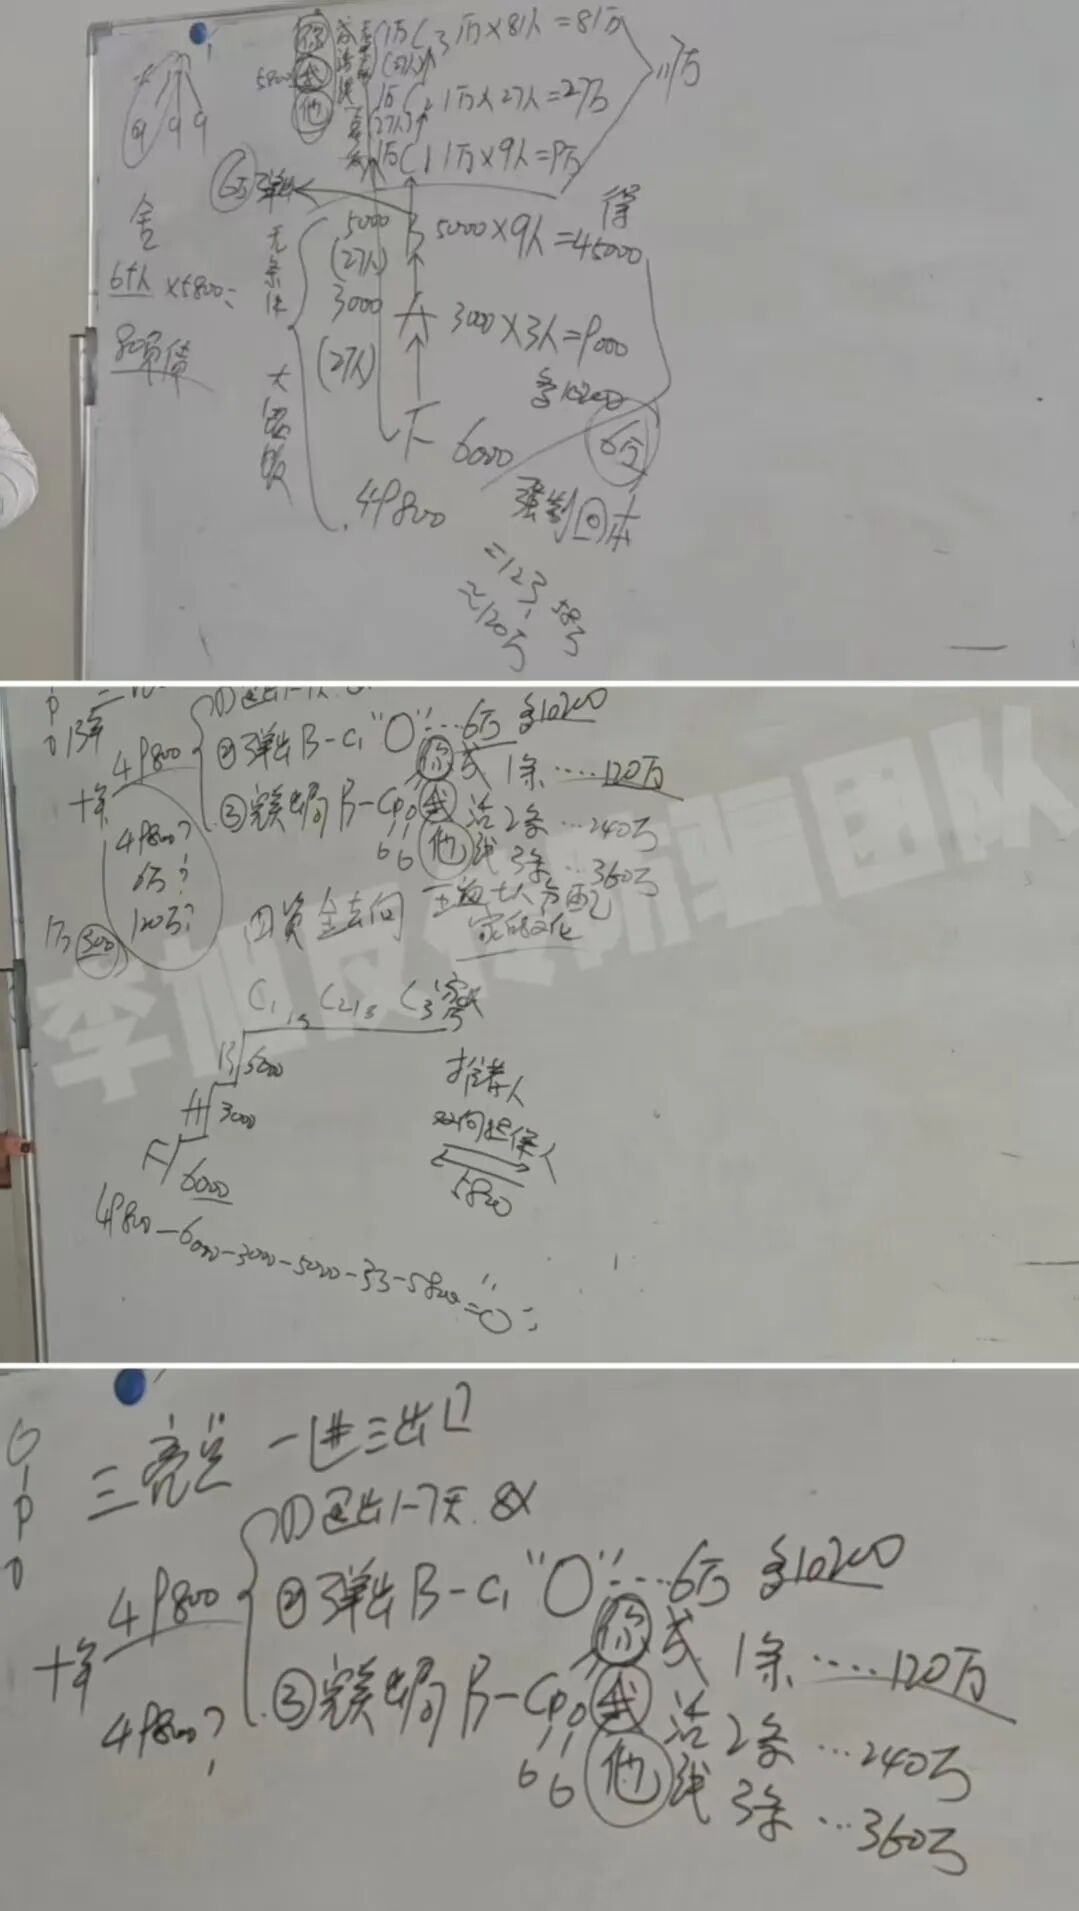 你
我
他
5800
1万 C3 1万×81人=81万
(27人)
1万 C2 1万×27人=27万
(27人)
1万 C1 1万×9人=9万
117万
6万 弹出
舍
得
5000 B 5000×9人=45000
(27人)
3000 A 3000×3人=9000
(27人)
多10200
6万
6000
49800
强制回本
无条件
大
×5800=
=123.58万
≈120万
李旭反传防骗团队
13年
49800
②弹出B-C1 "0"…6万 多10200
③完美出局B-C
你
我
他
成活线
1条……120万
2条…240万
3条…360万
十年
49800?
6万?
120万?
1万
300
四资金去向 五
家的文化
C1 1万 C2 1万 C3 1万
B 5000
A 3000
6000
推荐人
双向担保人
5800
49800-6000-3000-5000-33-5800="0"
GIPO
三亮点 一进三出口
①退出1-7天.8X
49800
②弹出B-C1 "0"…6万 多10200
十年
③完美出局B-C
你
我
他
成活线
1条……120万
2条…240万
3条…360万
49800?
66